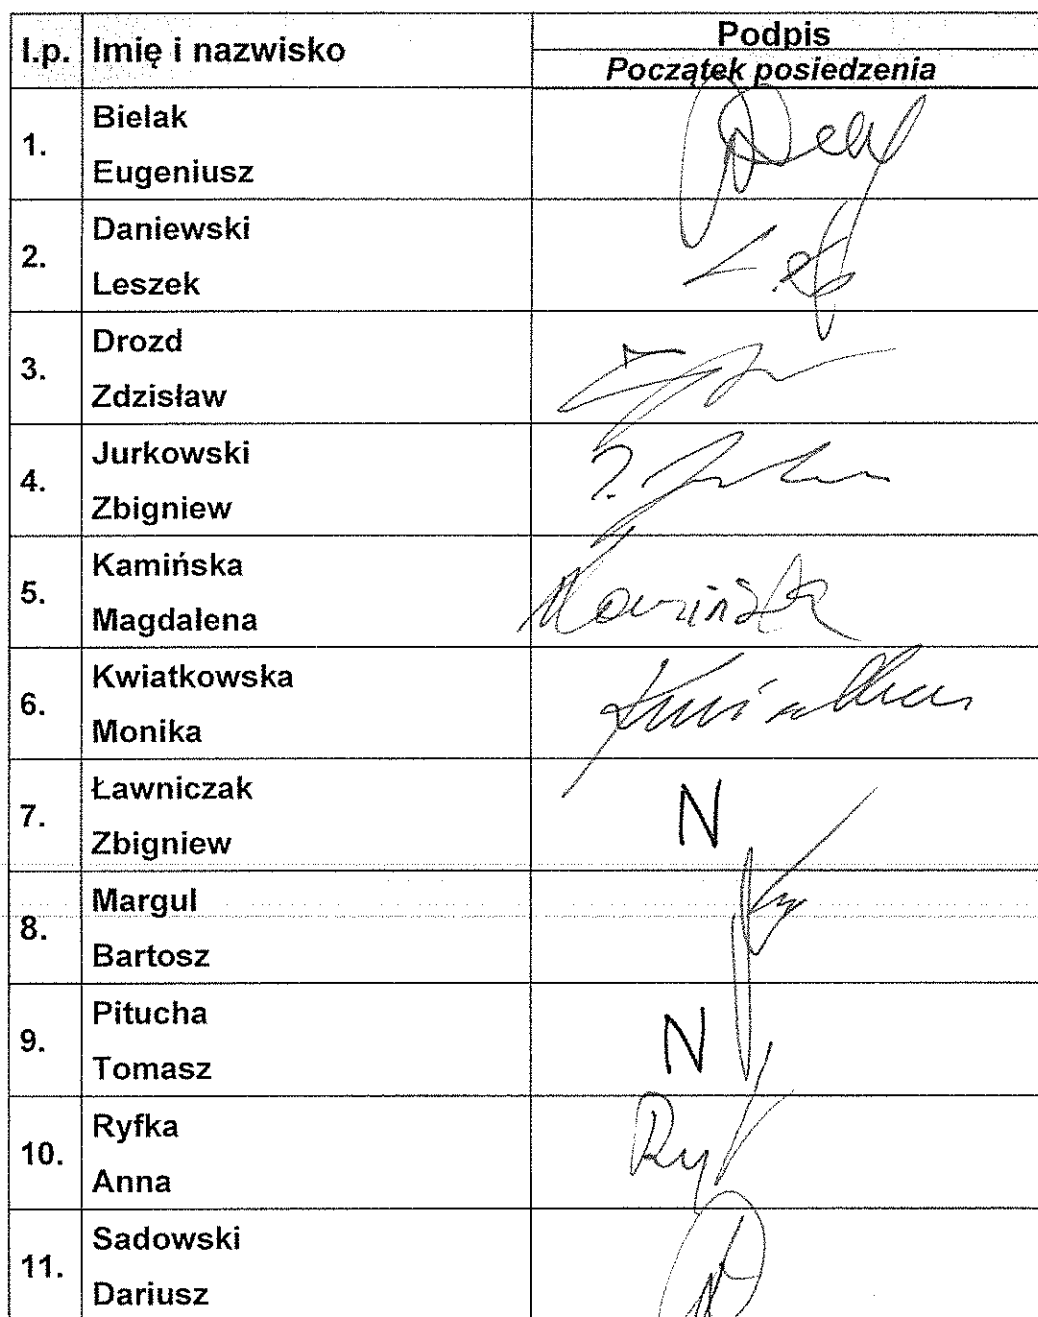 l.p. Imię i nazwisko Podpis
Początek posiedzenia
1. Bielak
Eugeniusz
2. Daniewski
Leszek
3. Drozd
Zdzisław
4. Jurkowski
Zbigniew
5. Kamińska
Magdalena
Kamińska
6. Kwiatkowska
Monika
7. Ławniczak
Zbigniew
N
8. Margul
Bartosz
9. Pitucha
Tomasz
N
10. Ryfka
Anna
11. Sadowski
Dariusz